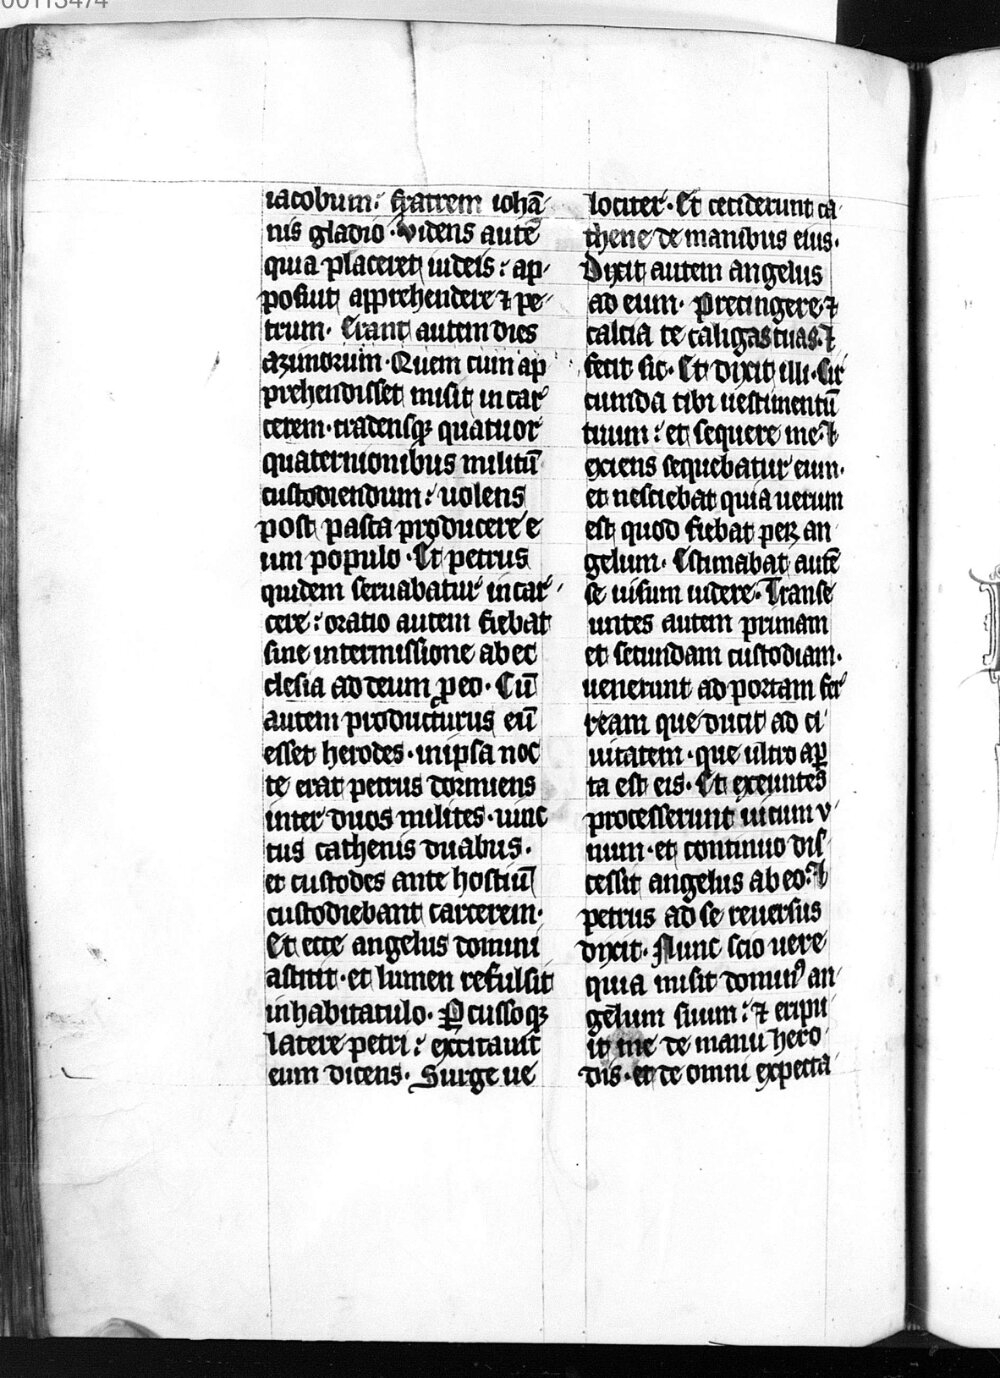 00113474
iacobum: fratrem iohā
nis gladio. Videns autē
quia placeret iudeis: ap
posuit apprehendere ⁊ pe
trum. Erant autem dies
azimorum. Quem cum ap
prehendisset misit in car
cerem. tradensqꝫ quatuor
quaternionibus militū
custodiendum: uolens
post pasca producere e
um populo. Et petrus
quidem seruabatur in car
cere: oratio autem fiebat
sine intermissione ab ec
clesia ad deum ꝓ eo. Cū
autem producturus eū
esset herodes. in ipsa noc
te erat petrus dormiens
inter duos milites. uinc
tus cathenis duabus.
et custodes ante hostiū
custodiebant carcerem.
Et ecce angelus domini
astitit. et lumen refulsit
in habitaculo. Ꝑcussoqꝫ
latere petri: excitauit
eum dicens. Surge ue
lociter. Et ceciderunt ca
thene de manibus eius.
Dixit autem angelus
ad eum. Precingere ⁊
calcia te caligas tuas. ⁊
fecit sic. Et dixit illi. Cir
cumda tibi uestimentū
tuum: et sequere me. ⁊
exiens sequebatur eum.
et nesciebat quia uerum
est quod fiebat per an
gelum. Estimabat autē
se uisum uidere. Transe
untes autem primam
et secundam custodiam.
uenerunt ad portam fer
ream que ducit ad ci
uitatem. que ultro aꝑ
ta est eis. Et exeuntes
processerunt uicum v
num. et continuo dis
cessit angelus ab eo. ⁊
petrus ad se reuersus
dixit. Nunc scio uere
quia misit dominꝰ an
gelum suum: ⁊ eripu
it me de manu hero
dis. et de omni expecta